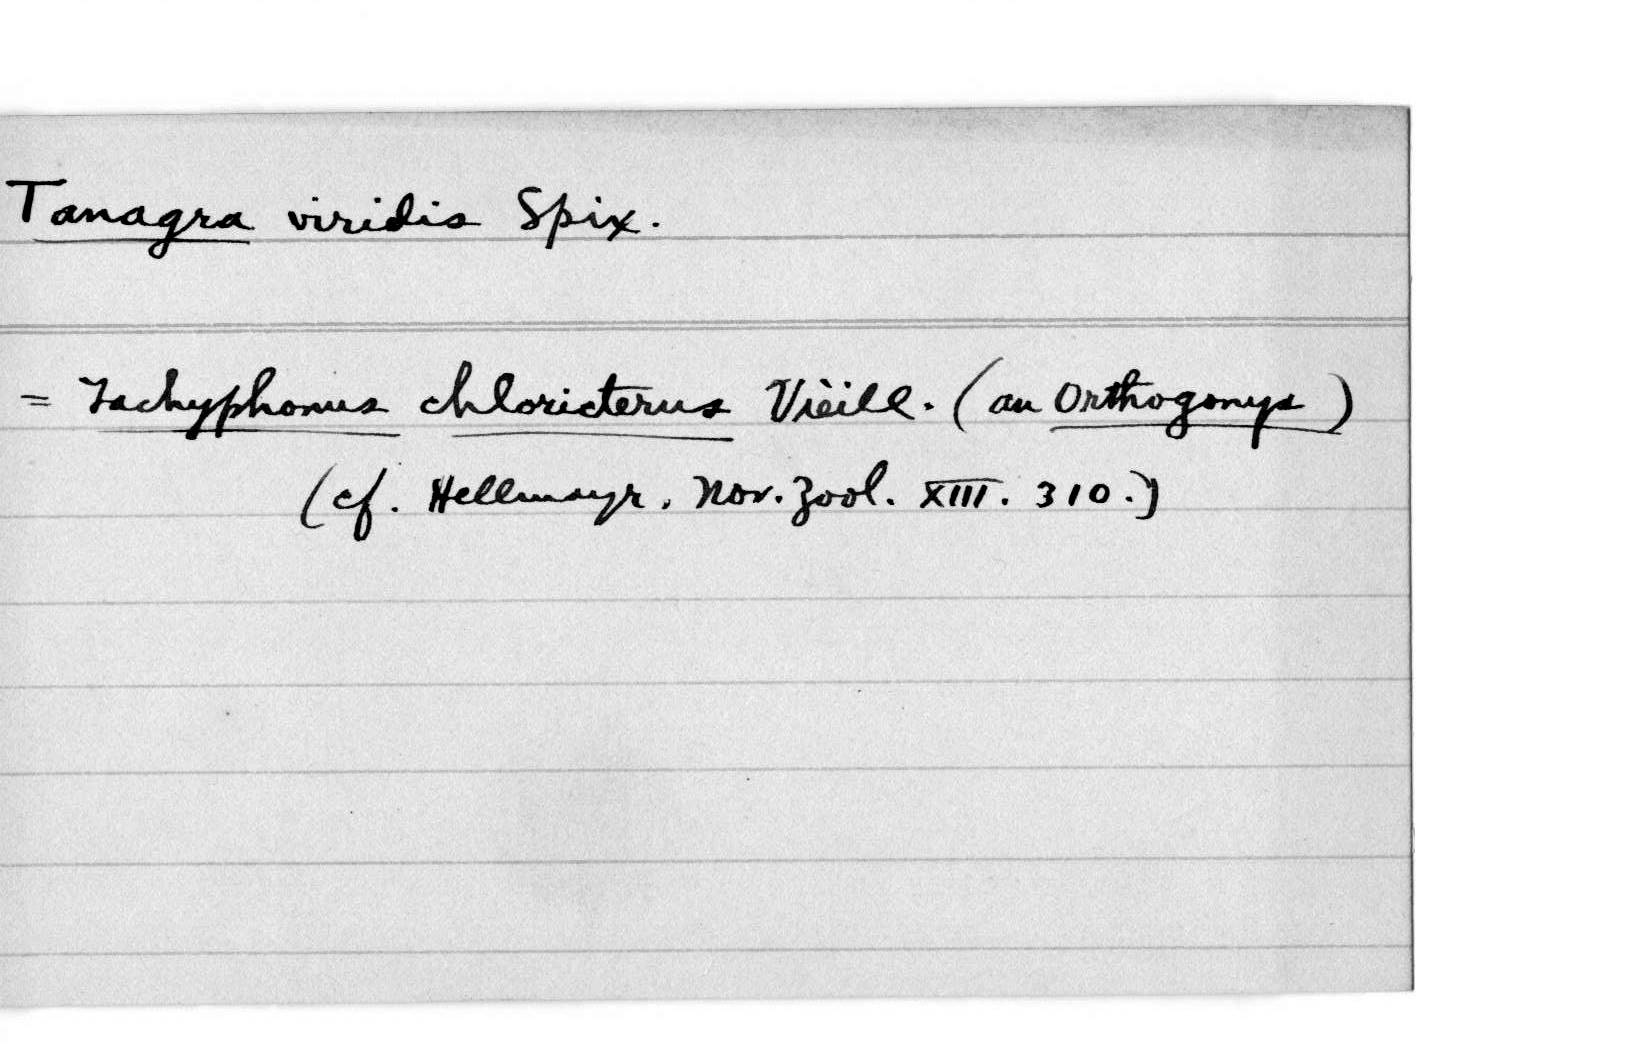 Tanagra viridis Spix.
= Tachyphonus chloricterus Vieill. (an Orthogonys)
(cf. Hellmayr, Nov. Zool. XIII. 310.)